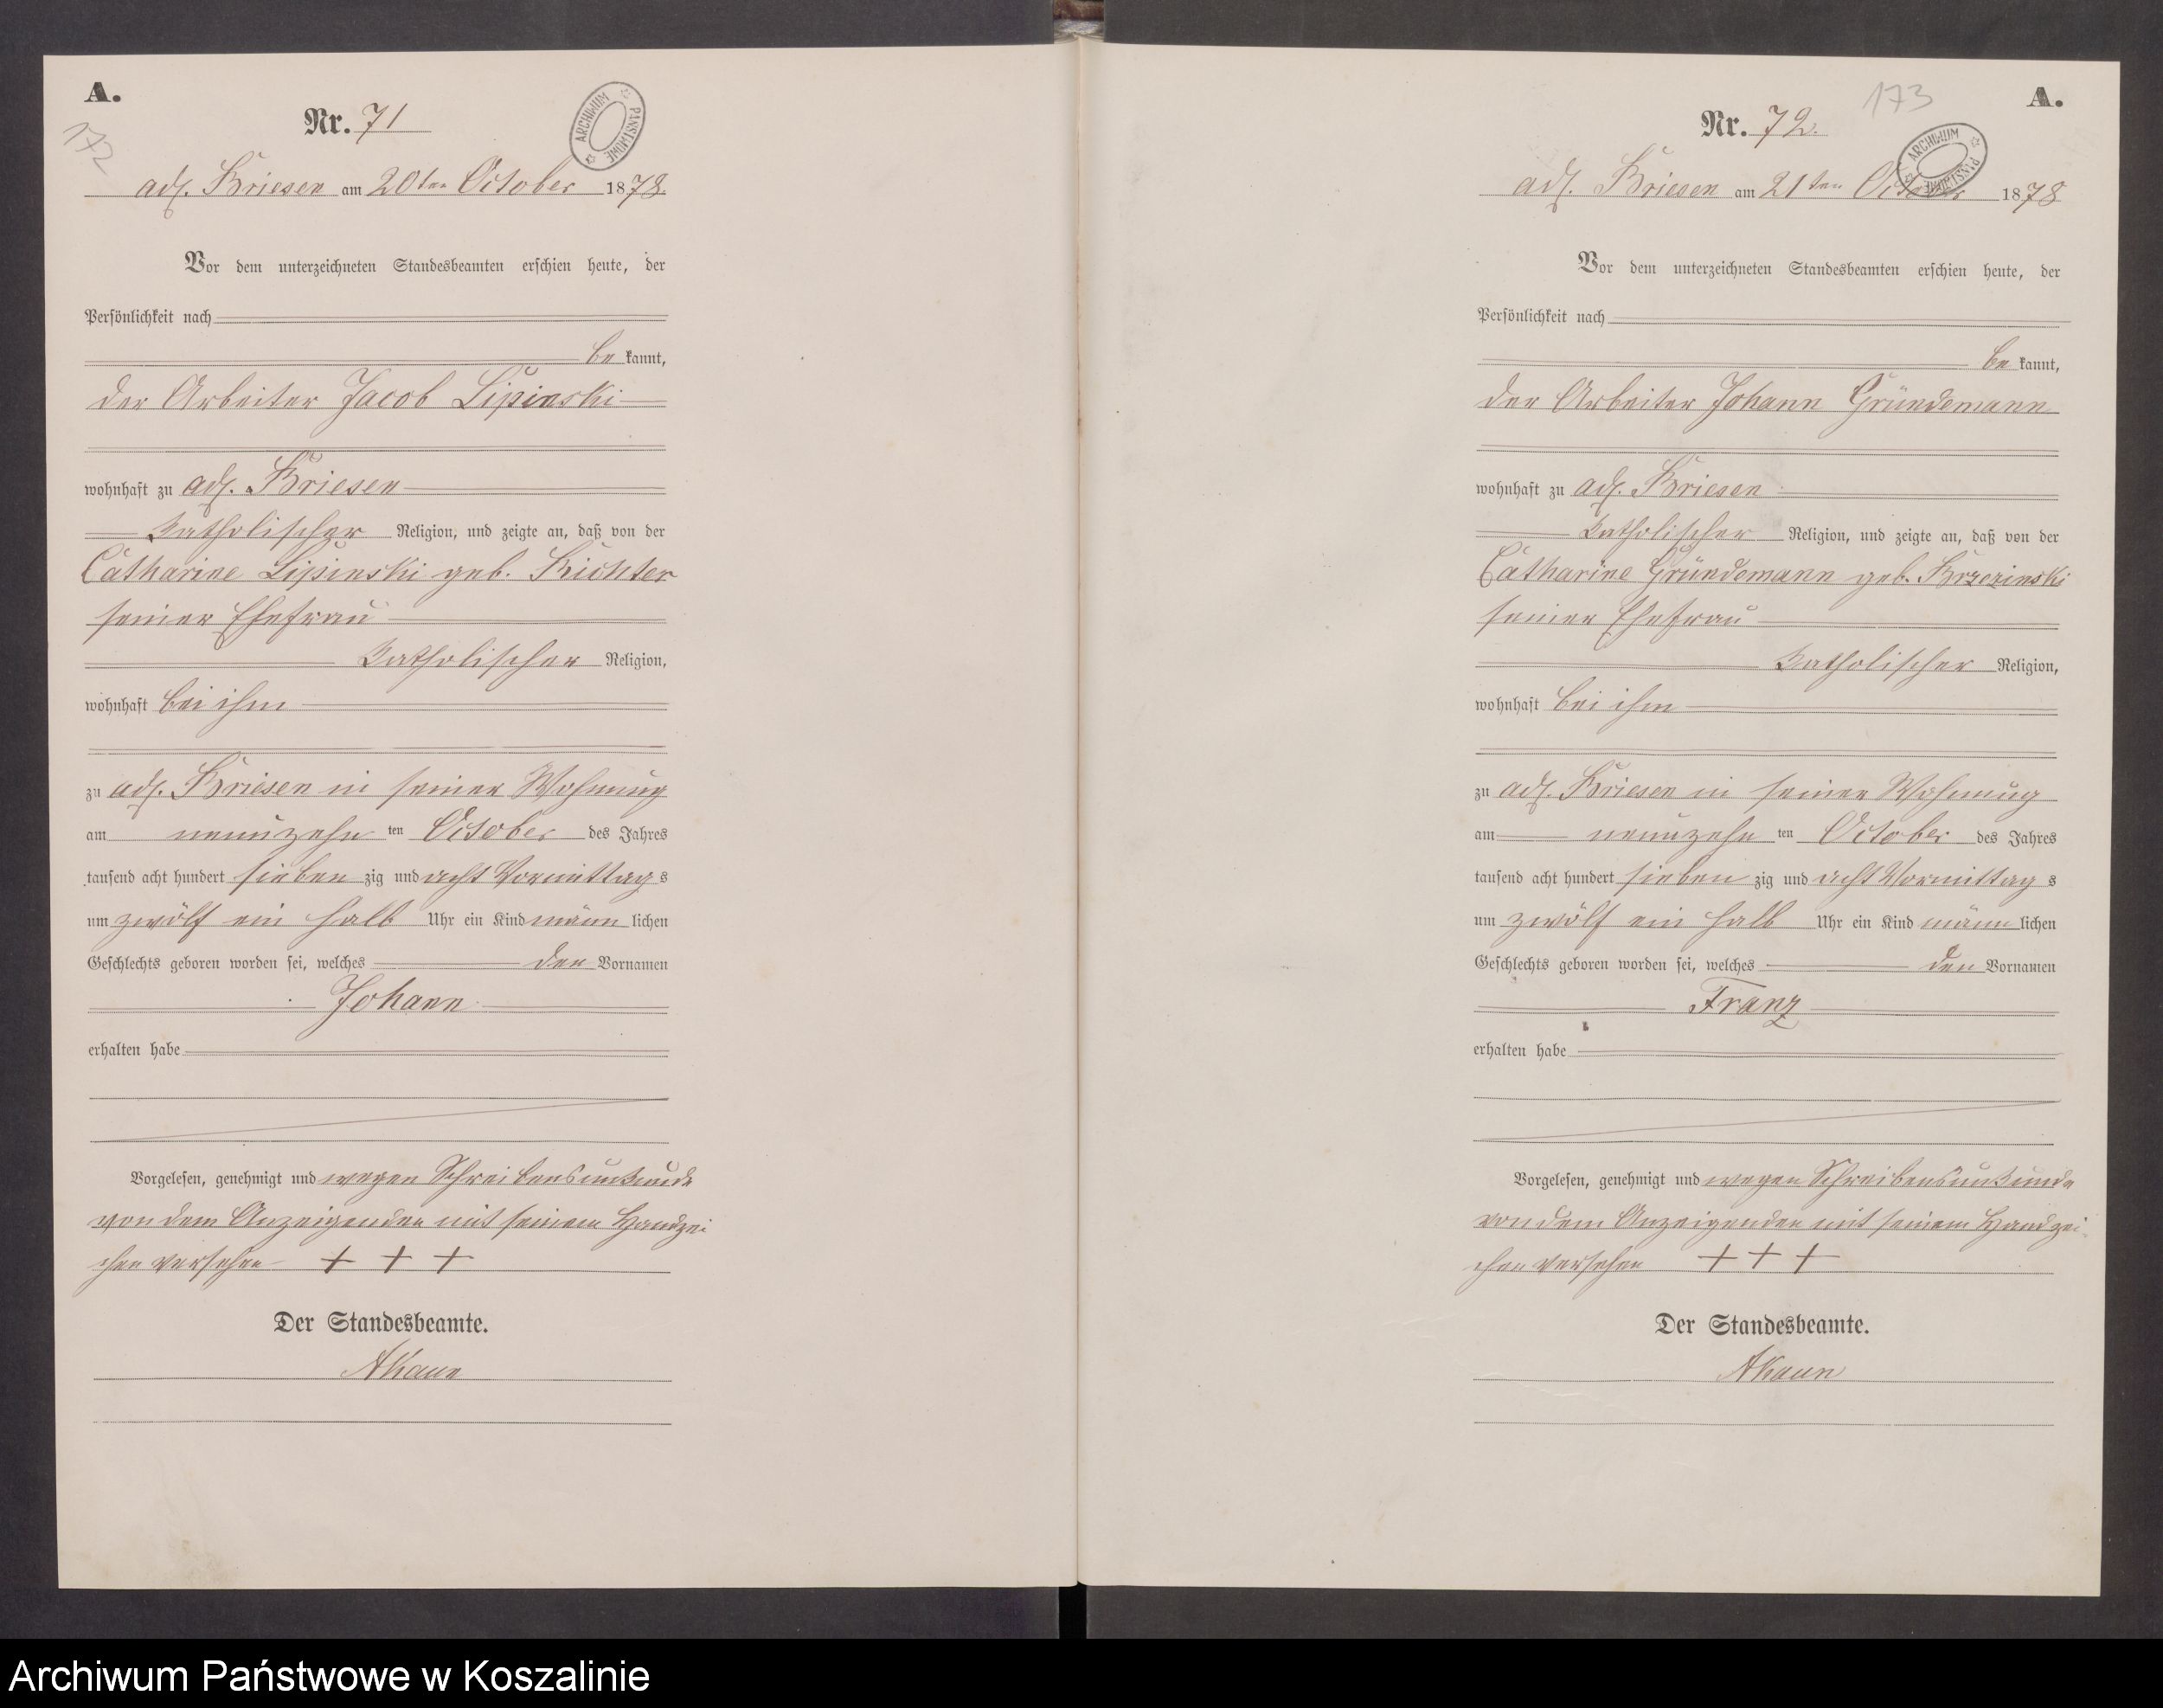 A.
172
Nr. 71
ARCHIWUM PAŃSTWOWE
adl. Briesen am 20ten October 1878.
Vor dem unterzeichneten Standesbeamten erschien heute, der
Persönlichkeit nach
be kannt,
der Arbeiter Jacob Lipinski
wohnhaft zu adl. Briesen
katholischer Religion, und zeigte an, daß von der
Catharine Lipinski geb. Richter
seiner Ehefrau
katholischer Religion,
wohnhaft bei ihm
zu adl. Briesen in seiner Wohnung
am neunzehn ten October des Jahres
tausend acht hundert sieben zig und acht Vormittag s
um zwölf ein halb Uhr ein Kind männ lichen
Geschlechts geboren worden sei, welches den Vornamen
Johann
erhalten habe
Vorgelesen, genehmigt und wegen Schreibensunkunde
von dem Anzeigenden mit seinem Handzei
chen versehen + + +
Der Standesbeamte.
173
A.
Nr. 72.
ARCHIWUM PAŃSTWOWE
adl. Briesen am 21ten October 1878
Vor dem unterzeichneten Standesbeamten erschien heute, der
Persönlichkeit nach
be kannt,
der Arbeiter Johann Gründemann
wohnhaft zu adl. Briesen
katholischer Religion, und zeigte an, daß von der
Catharine Gründemann geb. Brzezinski
seiner Ehefrau
katholischer Religion,
wohnhaft bei ihm
zu adl. Briesen in seiner Wohnung
am neunzehn ten October des Jahres
tausend acht hundert sieben zig und acht Vormittag s
um zwölf ein halb Uhr ein Kind männ lichen
Geschlechts geboren worden sei, welches den Vornamen
Franz
erhalten habe
Vorgelesen, genehmigt und wegen Schreibensunkunde
von dem Anzeigenden mit seinem Handzei-
chen versehen + + +
Der Standesbeamte.
Archiwum Państwowe w Koszalinie